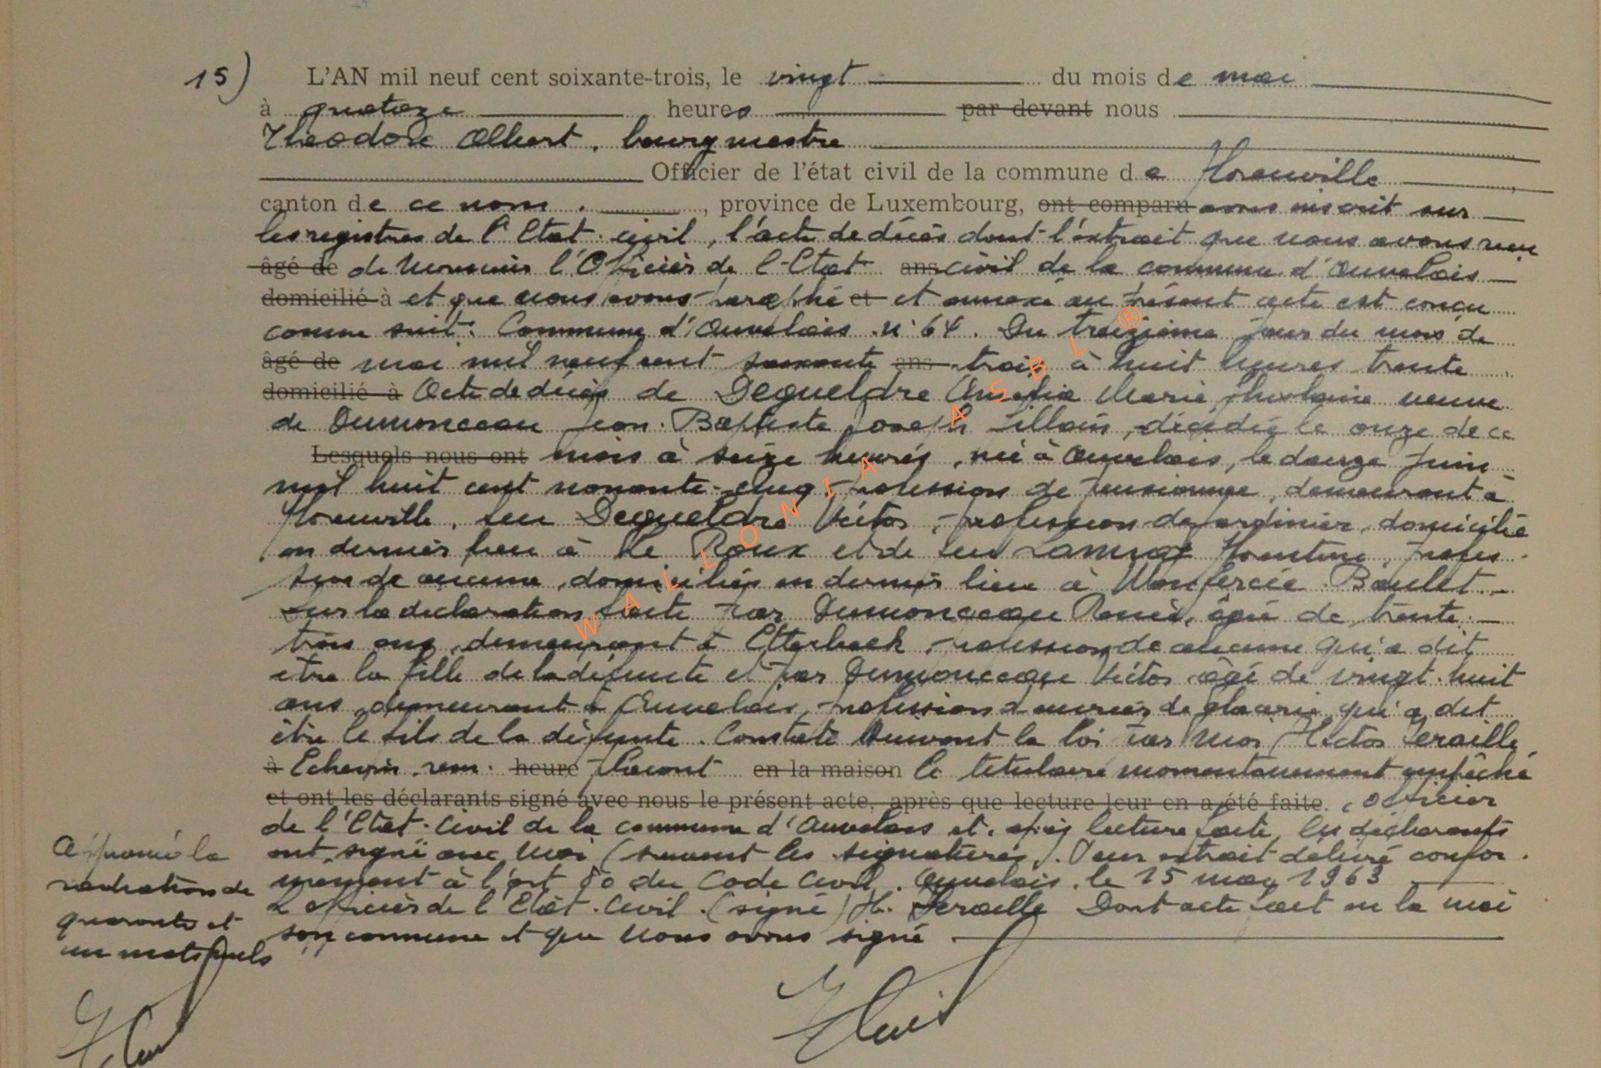 15) L'AN mil neuf cent soixante-trois, le vingt du mois de mai
à quatorze heures par devant nous
Théodore Albert, bourgmestre
Officier de l'état civil de la commune de Florenville
canton de ce nom, province de Luxembourg, ont comparu avons inscrit sur
les registres de l'Etat-civil, l'acte de décès dont l'extrait que nous avons reçu
âgé de de Monsieur l'Officier de l'Etat ans civil de la commune d'Auvelais
domicilié à et que nous avons paraphé et et annexé au présent acte est conçu
comme suit: Commune d'Auvelais n° 64. Du treizième jour du mois de
âgé de mai mil neuf cent soixante ans trois à huit heures trente
domicilié à Acte de décès de Dequeldre Aurelia Marie Ghislaine veuve
de Dumonceau Jean-Baptiste Joseph, décédée le onze de ce
Lesquels nous ont mois à seize heures, née à Auvelais, le douze juin
mil huit cent nonante-cinq, profession de pensionnée, demeurant à
Florenville, feu Dequeldre Victor, profession de jardinier, domicilié
en dernier lieu à Le Roux et de feu Florentine, profes-
sion de aucune, domiciliée en dernier lieu à Wanfercée-Baulet.
Sur la déclaration faite par Dumonceau Renée, âgée de trente
trois ans, demeurant à Etterbeek, profession de aucune qui a dit
être la fille de la défunte et par Dumonceau Victor âgé de vingt-huit
ans, demeurant à Auvelais, profession d'ouvrier de glacerie, qui a dit
être le fils de la défunte. Constaté suivant la loi par moi, Hector Seraille,
à Echevin, rem- heure plaçant en la maison le titulaire momentanément empêché
et ont les déclarants signé avec nous le présent acte, après que lecture leur en a été faite. officier
de l'Etat-Civil de la commune d'Auvelais et, après lecture faite, les déclarants
ont signé avec moi (suivent les signatures). Pour extrait délivré confor-
mément à l'art 80 du Code Civil. Auvelais, le 15 may 1963
L'officier de l'Etat-Civil. (signé) H. Seraille Dont acte fait en la mai
son commune et que nous avons signé
Approuvé la
radiation de
quarante et
un mots nuls
WALLONIA ASBL ®